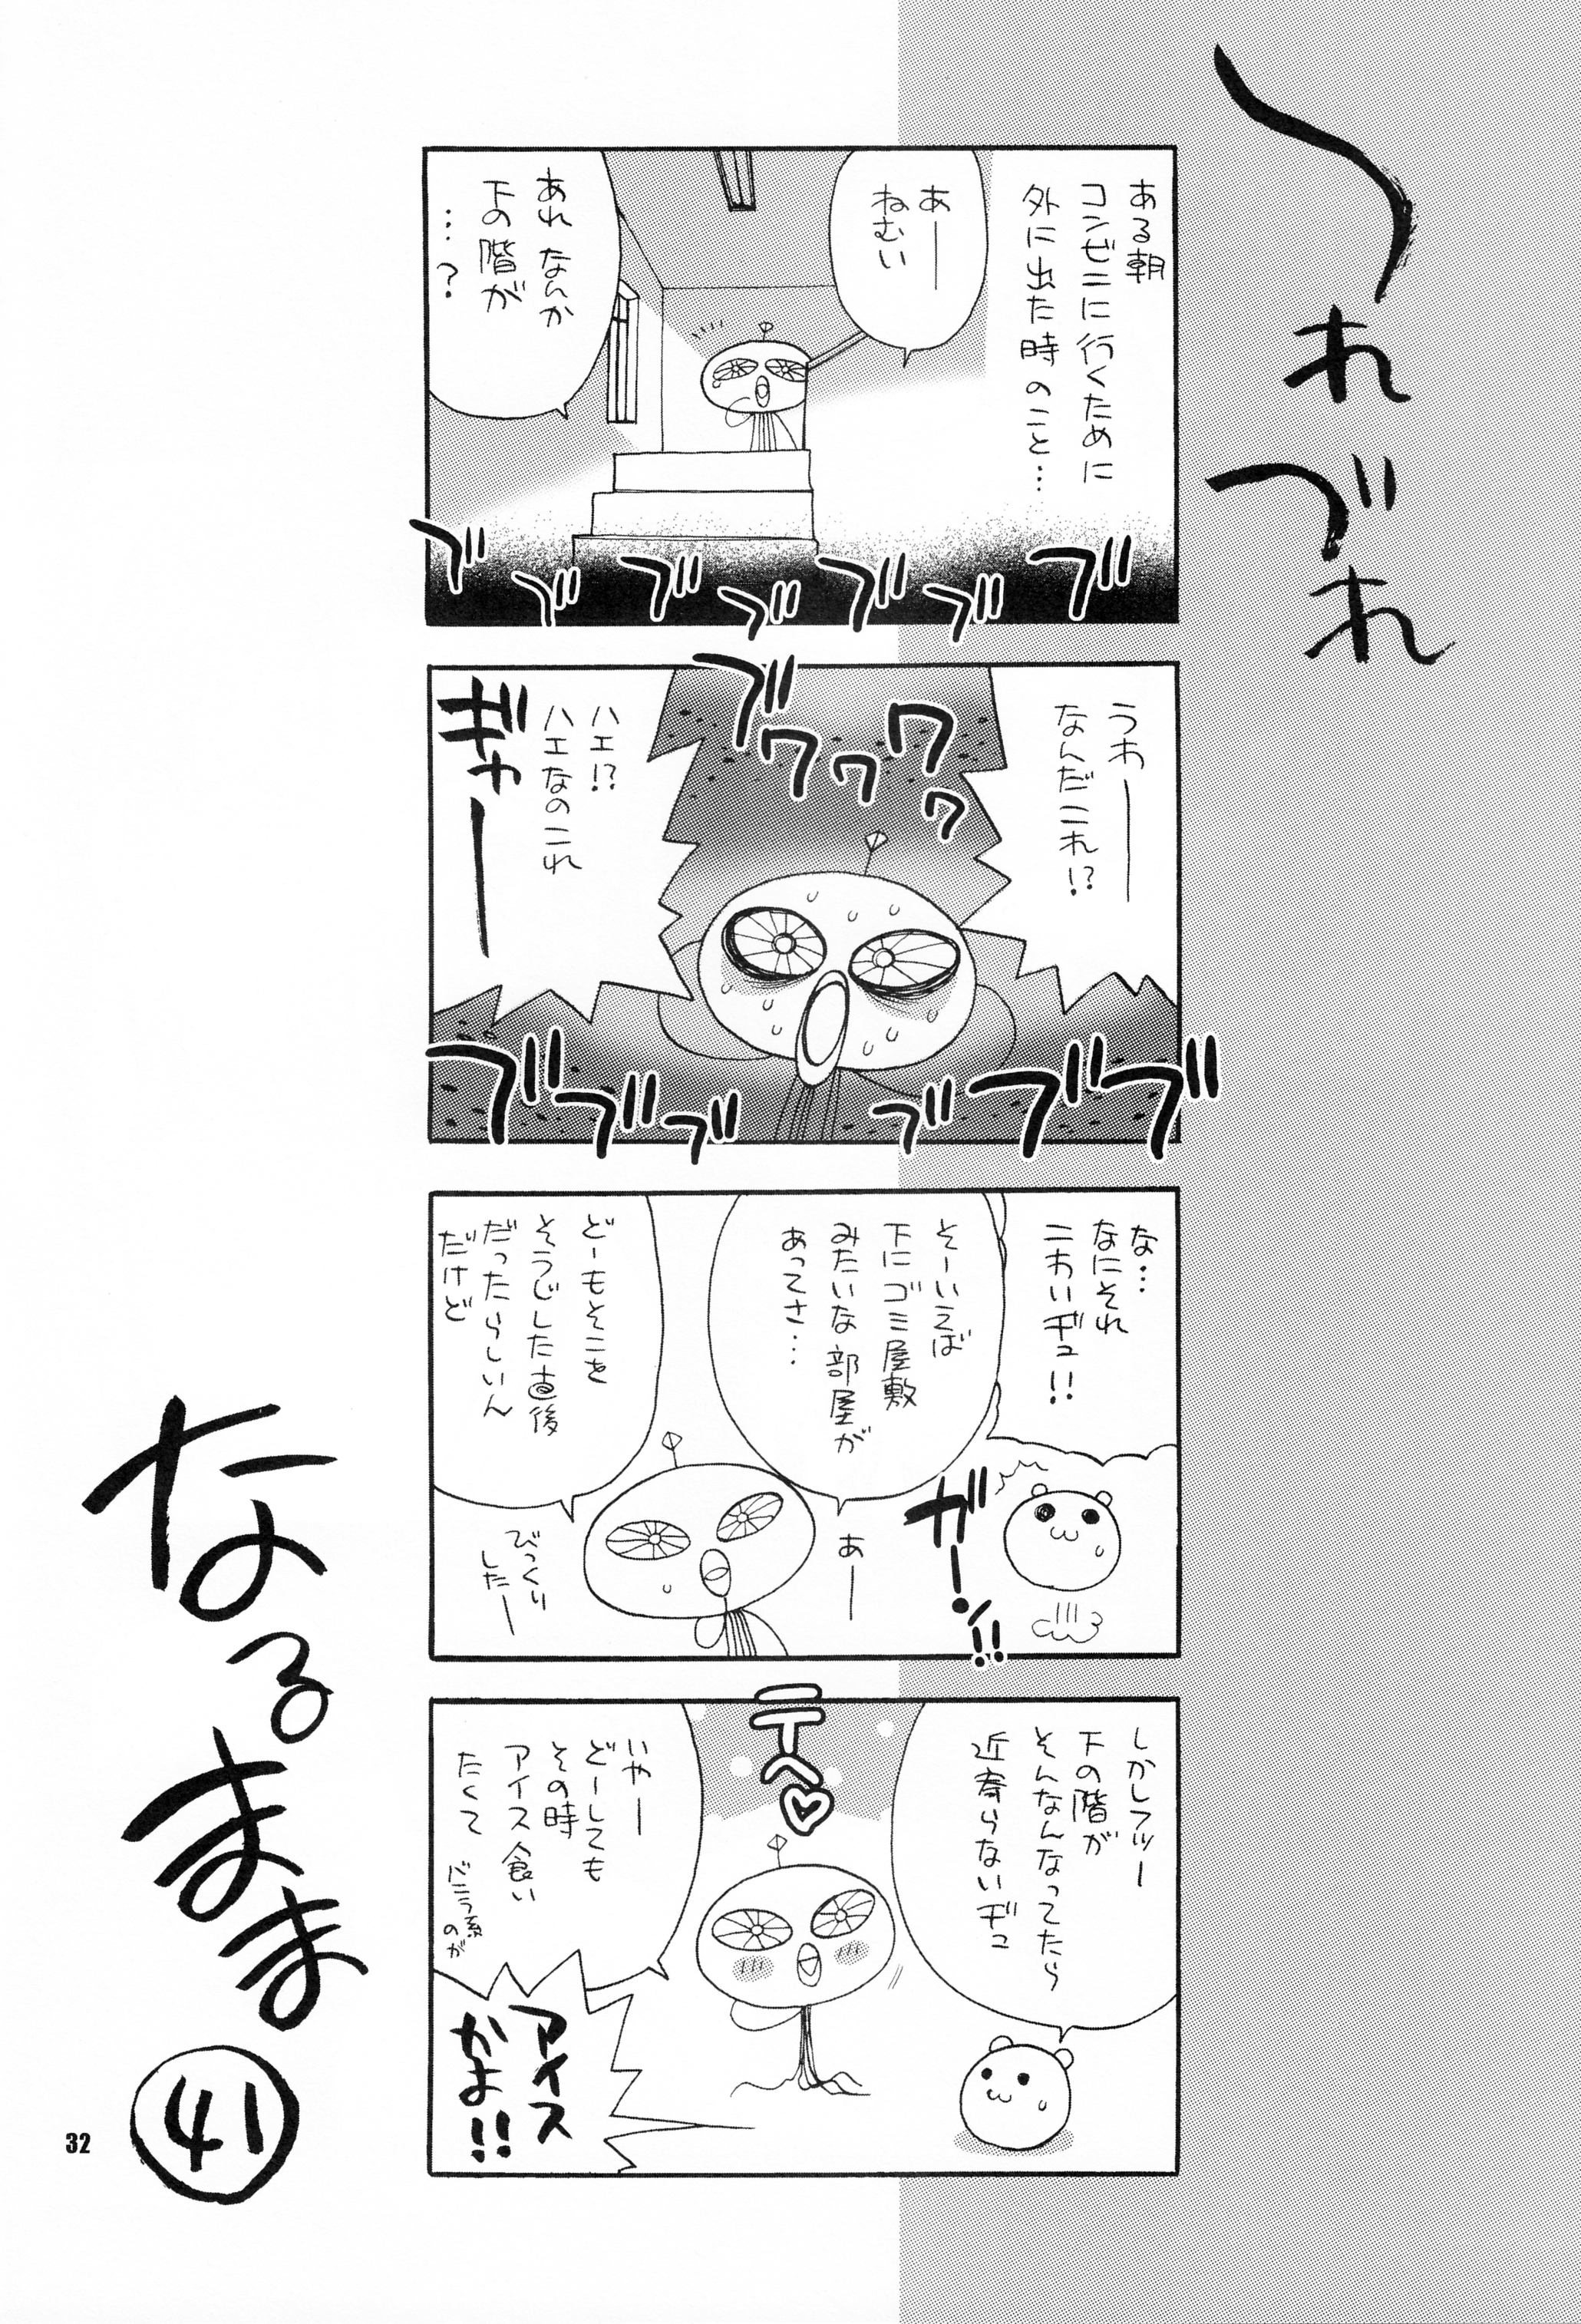 つれづれ
ある朝
コンビニに行くために
外に出た時のこと…
あー
ねむい
あれ なんか
下の階が
…？
ブ
ブ
ブ
ブ
ブ
ブ
ブ
うわー
なんだこれ!?
ブ
ワ
ワ
ワ
ワ
ハエ!?
ハエなのこれ
ギャー
ブ
ブ
ブ
ブ
ブ
ブ
な…
なにそれ
こわいヂュ!!
ガーン!!
そーいえば
下にゴミ屋敷
みたいな部屋が
あってさ…
あー
どーもそこを
そうじした直後
だったらしいん
だけど
びっくり
したー
しかしフツー
下の階が
そんなんなってたら
近寄らないヂュ
テヘ♡
いやー
どーしても
その時
アイス食い
たくて
バニラ系
のが
アイス
かよ!!
なるまま
41
32